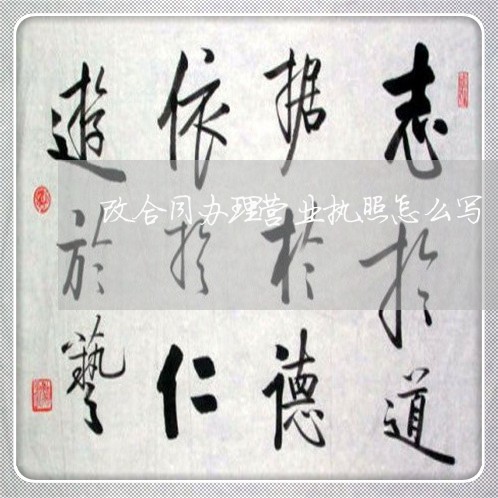 志於道
据於德
依於仁
遊於藝
改合同办理营业执照怎么写